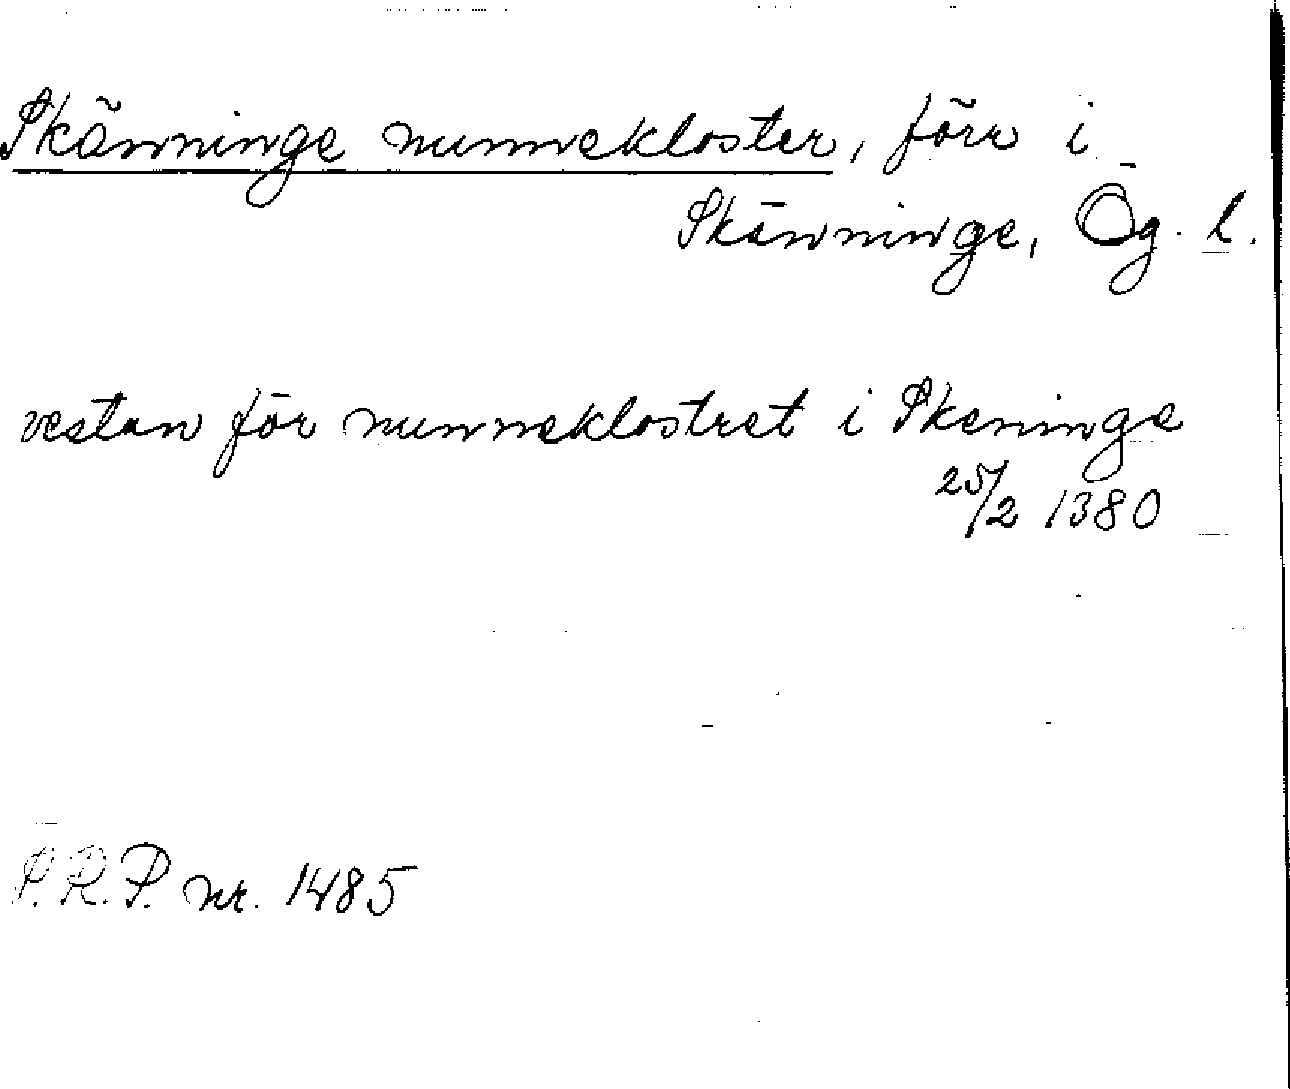 Skänninge nunnekloster, förr i
Skänninge, Ög. l.
vestan för nunneklostret i Skeninge
25/2 1380
P.R.P. nr. 1485